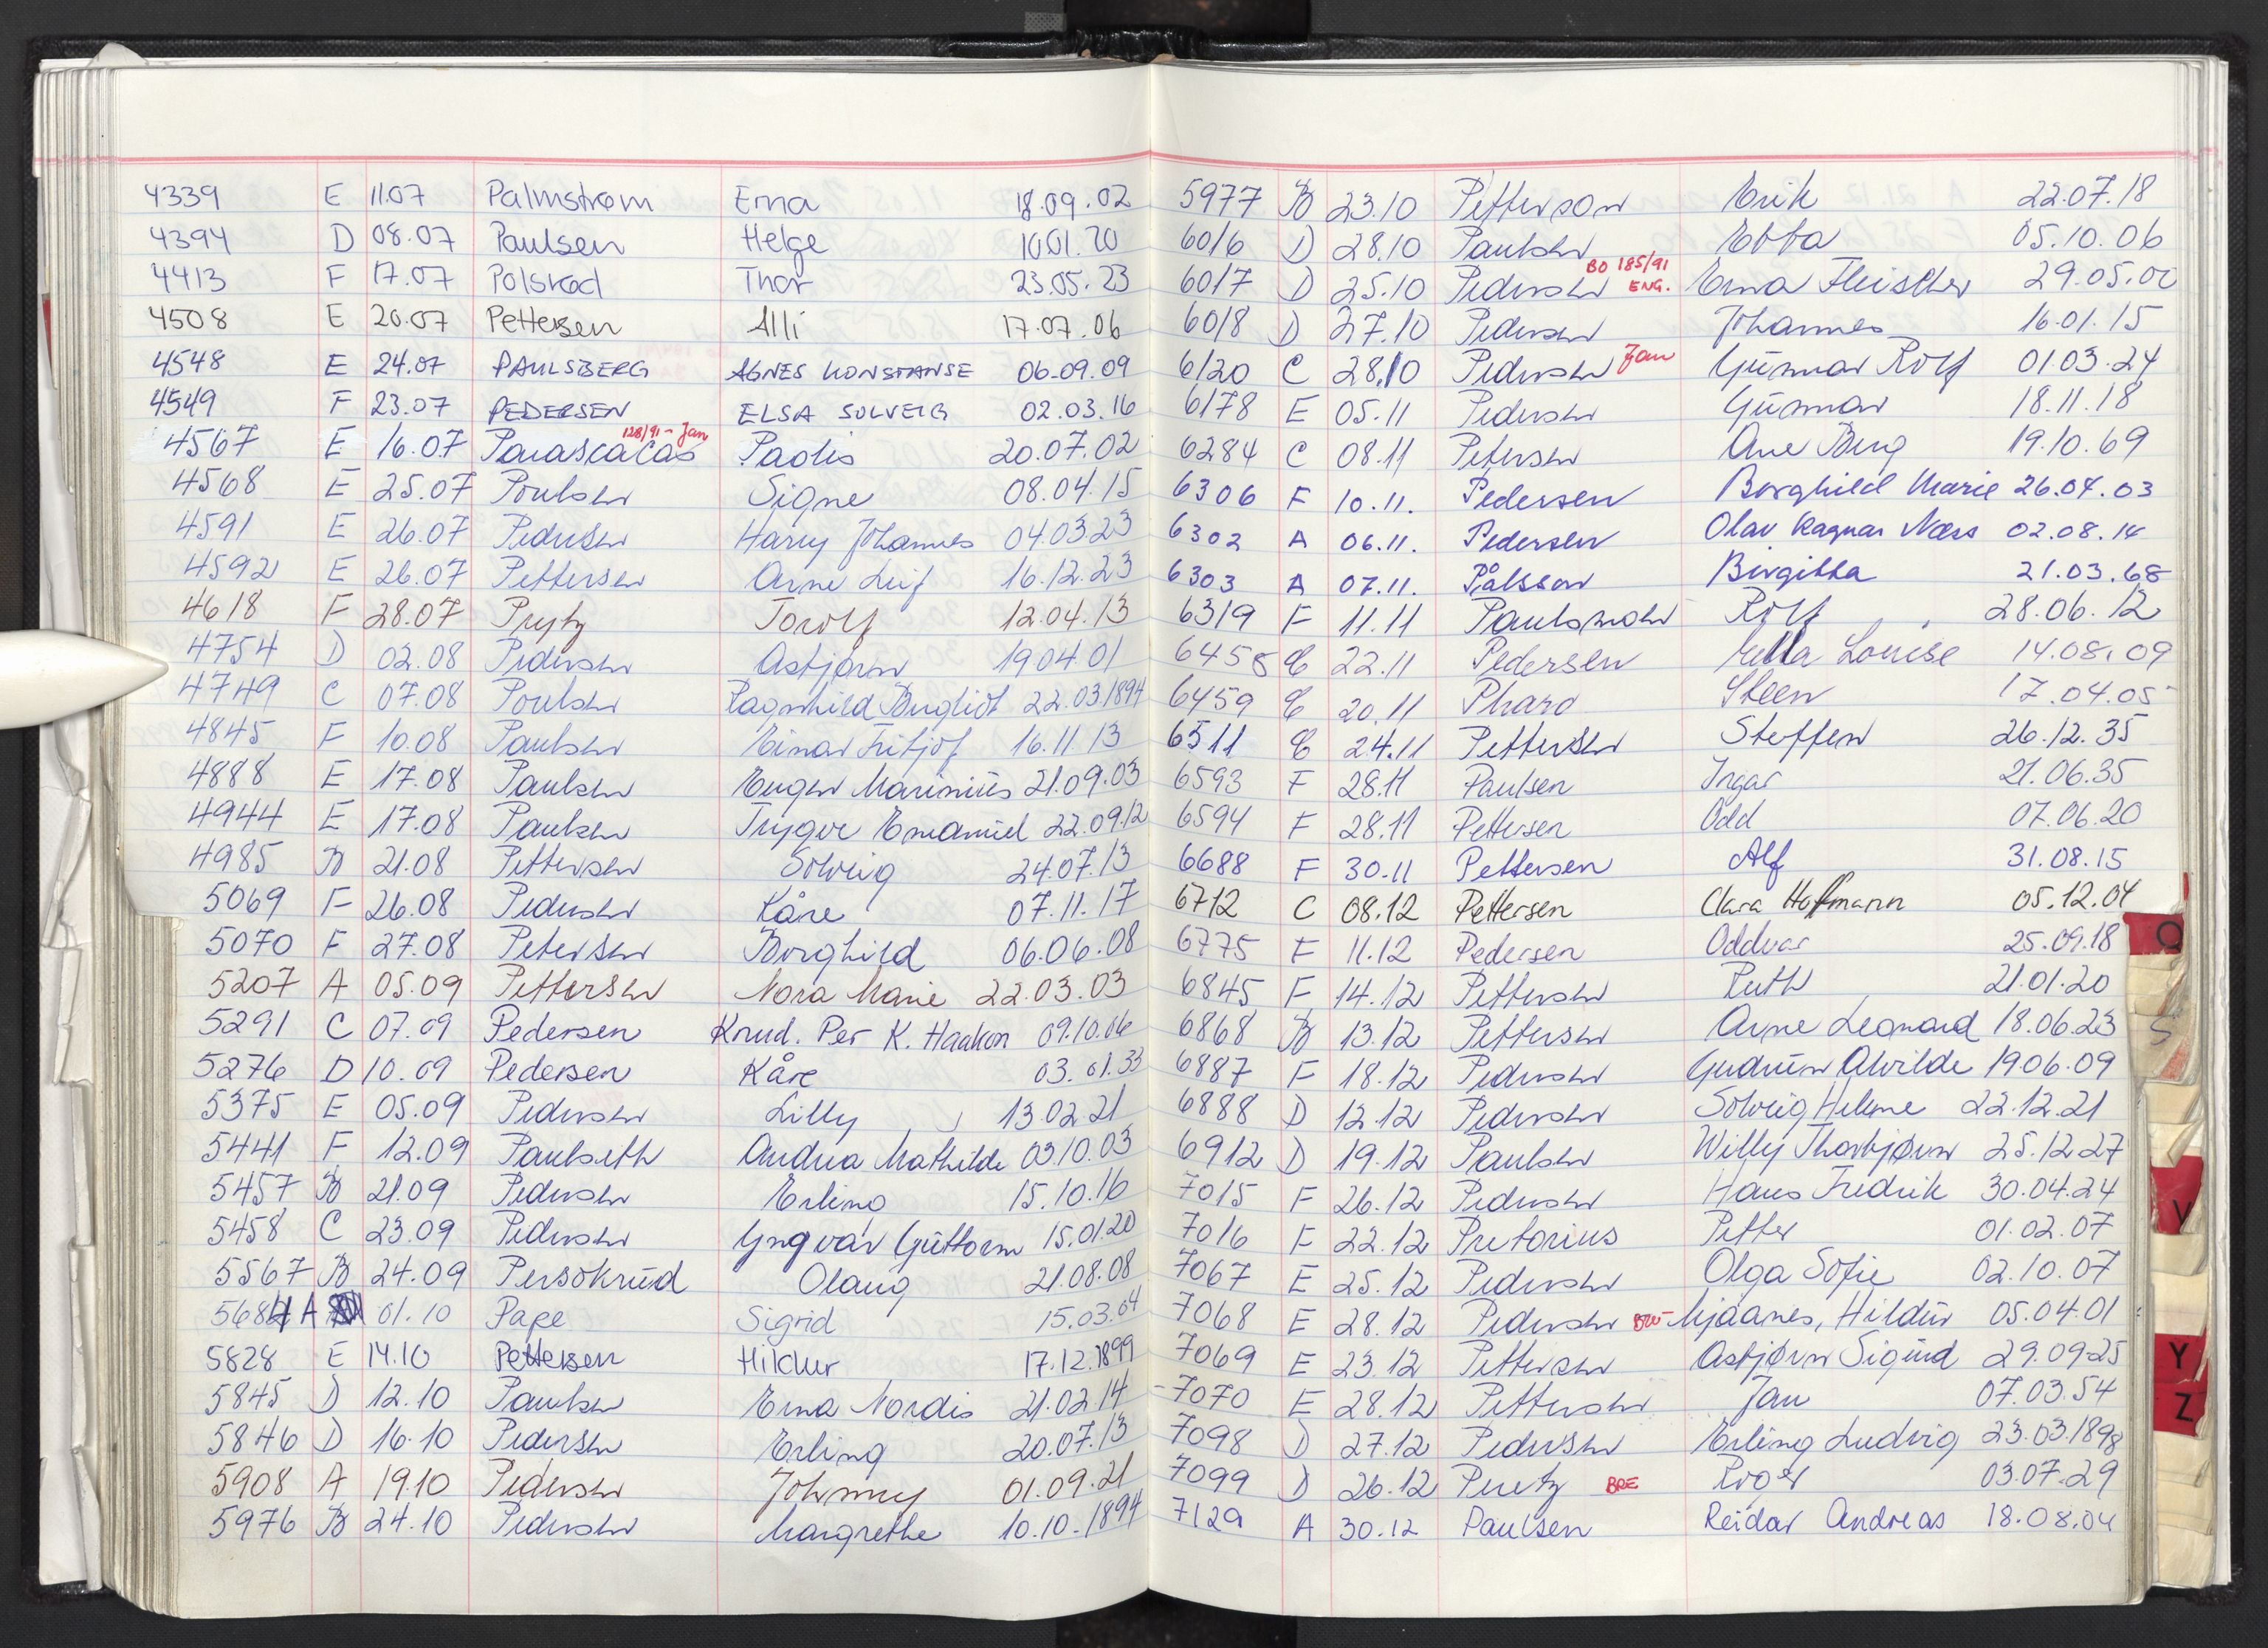 4339 E 11.07 Palmstrøm Erna 18.09.02
4394 D 08.07 Paulsen Helge 10.01.20
4413 F 17.07 Polsrød Thor 23.05.23
4508 E 20.07 Pettersen Alli 17.07.06
4548 E 24.07 PAULSBERG AGNES KONSTANSE 06.09.09
4549 F 23.07 PEDERSEN ELSA SOLVEIG 02.03.16
128/91 - Jan
4567 E 16.07 Paolis 20.07.02
4568 E 25.07 Poulsen Signe 08.04.15
4591 E 26.07 Pedersen Harry Johannes 04.03.23
4592 E 26.07 Pettersen Arne Leif 16.12.23
4618 F 28.07 Prytz Torolf 12.04.13
4754 D 02.08 Pedersen Asbjørn 19.04.01
4749 C 07.08 Poulsen Ragnhild Bergliot 22.03.1894
4845 F 10.08 Paulsen Einar Fritjof 16.11.13
4888 E 17.08 Paulsen Eugen Marinius 21.09.03
4944 E 17.08 Paulsen Trygve Emanuel 22.09.12
4985 B 21.08 Pettersen Solveig 24.07.13
5069 F 26.08 Pedersen Kåre 07.11.17
5070 F 27.08 Petersen Borghild 06.06.08
5207 A 05.09 Pettersen Nora Marie 22.03.03
5291 C 07.09 Pedersen Knud. Per K. Haakon 09.10.06
5276 D 10.09 Pedersen Kåre 03.01.33
5375 E 05.09 Pedersen Lilly 13.02.21
5441 F 12.09 Paulseth Andrea Mathilde 03.10.03
5457 B 21.09 Pedersen Erling 15.10.16
5458 C 23.09 Pedersen Yngvar Guttorm 15.01.20
5567 B 24.09 Persokrud Olaug 21.08.08
5684 A 01.10 Pape Sigrid 15.03.04
5828 E 14.10 Pettersen Hildur 17.12.1899
5845 D 12.10 Paulsen Erna Nordis 21.02.14
5846 D 16.10 Pedersen Erling 20.07.13
5908 A 19.10 Pedersen Johnny 01.09.21
5976 B 24.10 Pedersen Margrethe 10.10.1894
5977 B 23.10 Petterson Erik 22.07.18
6016 D 28.10 Paulsen Ebba 05.10.06
BO 185/91
6017 D 25.10 Pedersen ENG. Erna Fleischer 29.05.00
6018 D 27.10 Pedersen Johannes 16.01.15
6120 C 28.10 Pedersen Jan Gunnar Rolf 01.03.24
6178 E 05.11 Pedersen Gunnar 18.11.18
6284 C 08.11 Petersen Ane Berg 19.10.69
6306 F 10.11. Pedersen Borghild Marie 26.04.03
6302 A 06.11. Pedersen Olav Ragnar Næss 02.08.14
6303 A 07.11. Pålsson Birgitta 21.03.68
6319 F 11.11 Rolf 28.06.12
6458 E 22.11 Pedersen Ella Louise 14.08.09
6459 E 20.11 Pharo Steen 17.04.05
6511 E 24.11 Pettersen Steffen 26.12.35
6593 F 28.11 Paulsen Ingar 21.06.35
6594 F 28.11 Pettersen Odd 07.06.20
6688 F 30.11 Pettersen Alf 31.08.15
6712 C 08.12 Pettersen Clara Hoffmann 05.12.04
6775 F 11.12 Pedersen Oddvar 25.09.18
6845 F 14.12 Pettersen Ruth 21.01.20
6868 B 13.12 Pettersen Arne Leonard 18.06.23
6887 F 18.12 Pedersen Gudrun Alvilde 19.06.09
6888 D 12.12 Pedersen Solveig Helene 22.12.21
6912 D 19.12 Paulsen Willy Thorbjørn 25.12.27
7015 F 26.12 Pedersen Hans Fredrik 30.04.24
7016 F 22.12 Pretorius Petter 01.02.07
7067 E 25.12 Pedersen Olga Sofie 02.10.07
7068 E 28.12 Pedersen BRE- Mjaanes, Hildur 05.04.01
7069 E 23.12 Pettersen Asbjørn Sigurd 29.09.25
7070 E 28.12 Pettersen Jan 07.03.54
7098 D 27.12 Pedersen Erling Ludvig 23.03.1898
7099 D 26.12 Peretz BRE Roger 03.07.29
7129 A 30.12 Paulsen Reidar Andreas 18.08.04
Q
S
V
Y
Z